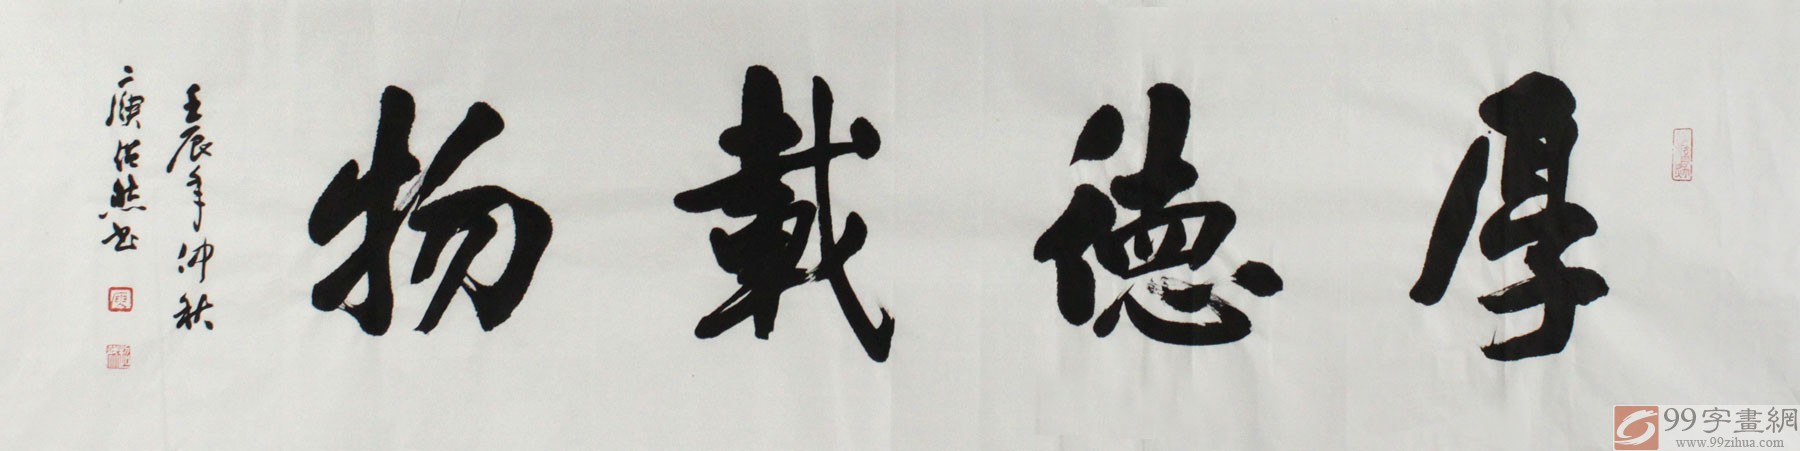 厚德載物
壬辰年仲秋
书
99字畫網
www.99zihua.com